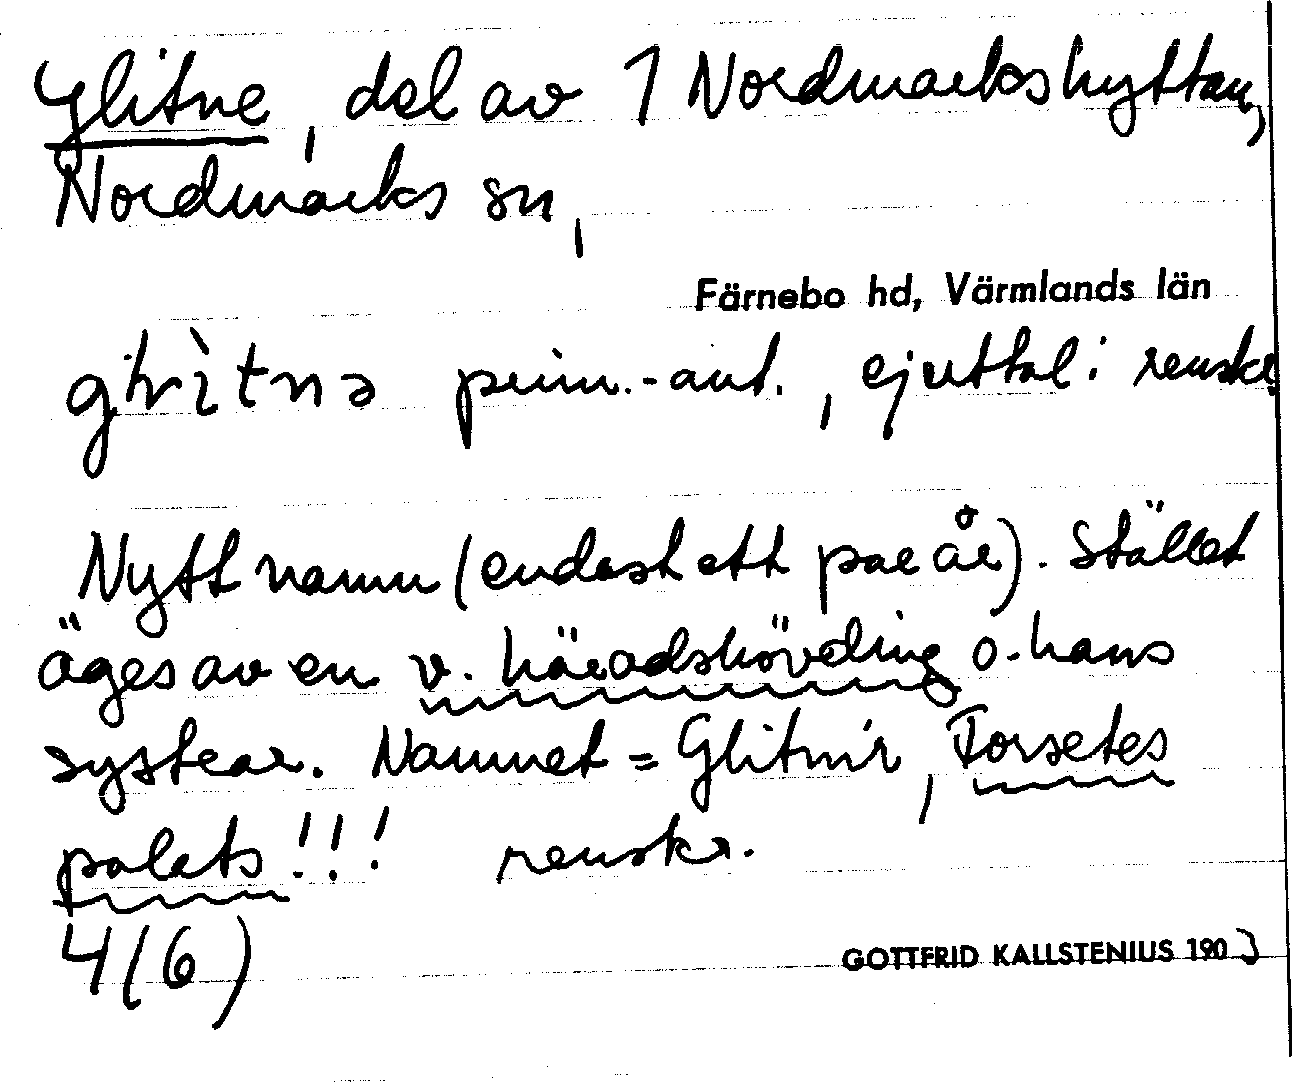 Glitne, del av 1 Nordmarkshyttan,
Nordmarks sn,
Färnebo hd, Värmlands län
prim.-ant., ej uttal i renskr.
Nytt namn (endast ett par år). Stället
äges av en v. häradshövding o. hans
systrar. Namnet = Glitnir, Forsetes
palats!!! renskr.
4(6)
GOTTFRID KALLSTENIUS 1903